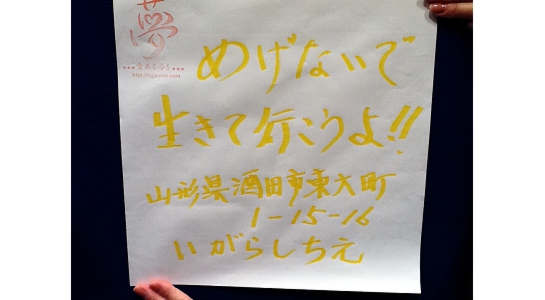 夢
めげないで
生きて行こうよ!!
山形県酒田市東大町
1-15-16
いがらしちえ